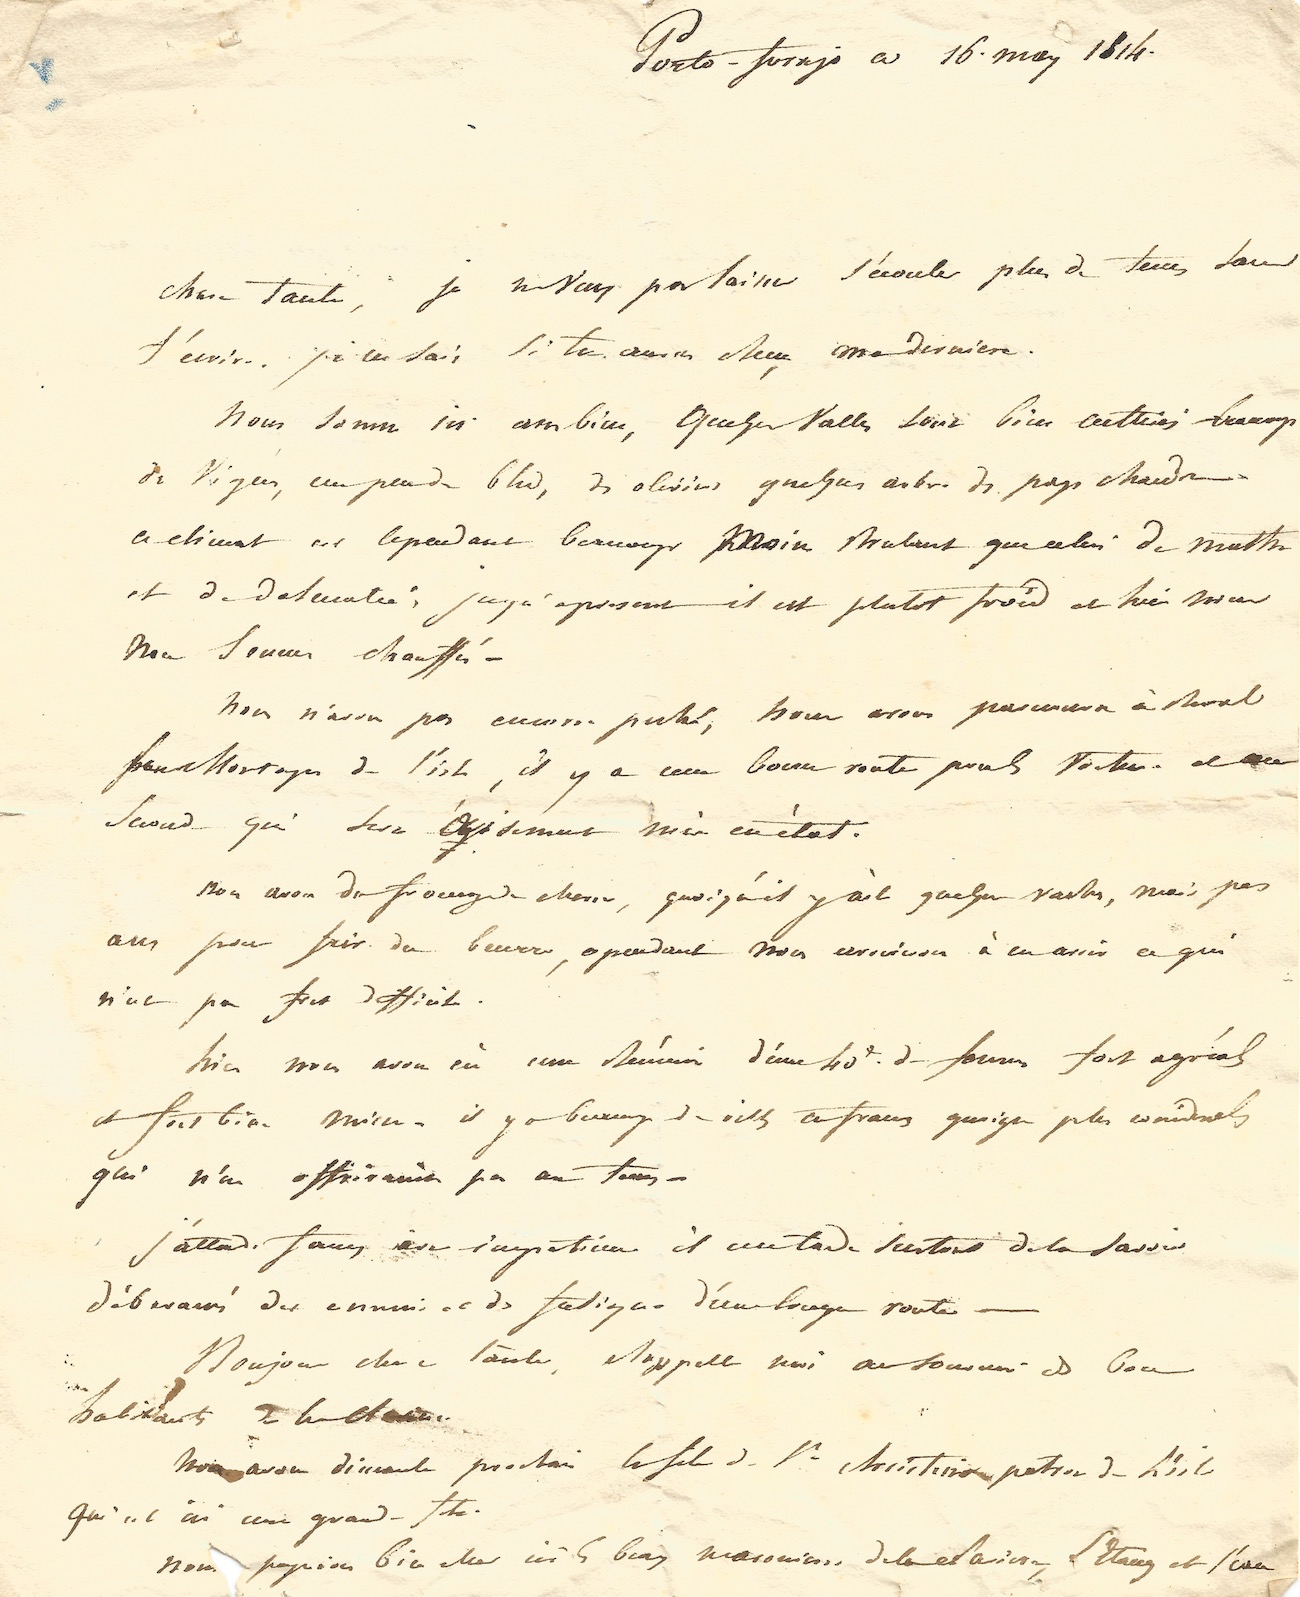 Porto-ferrajo ce 16. may 1814.
chere tante, je ne veux pas laisser s'écouler plus de tems sans
t'écrire. je ne sais si tu auras ma derniere.
nous sommes ici assez bien, quelques vallées sont bien cultivées beaucoup
de vignes, un peu de bled, des oliviers quelques arbres des pays chauds
ce climat est cependant beaucoup moin brulant que celui de malthe
et de dalmatie, jusqu'apresent il est plutot froid et hier nous
nous sommes chauffés -
nous n'avons pas encore peché, nous avons parcouru à cheval
les montagnes de l'isle, il y a une bonne route pour les voitures et une
seconde qui sera mise en état.
nous avons du fromage de chevre, quoiqu'il y ait quelques vaches, mais pas
assez pour faire du beurre, cependant nous à en avoir ce qui
n'est pas fort difficile.
hier nous avons eu une réunion d'une 40e. de femmes fort agréable
et fort bien mises - il y a beaucoup de villes en france quoique plus considerables
qui n'en offriraient pas autant -
j'attends fanny avec impatience il me tarde surtout de la savoir
débarrassé des ennuis et des fatigues d'une longue route —
Bonjour chere tante, rappelle moi au souvenir des bons
habitants de la
nous avons dimanche prochain la fete de Ste. christine patrone de l'isle
qui est ici une grande fete.
nous bien cher ici les beaux maroniers de la, l'Etang et l'eau